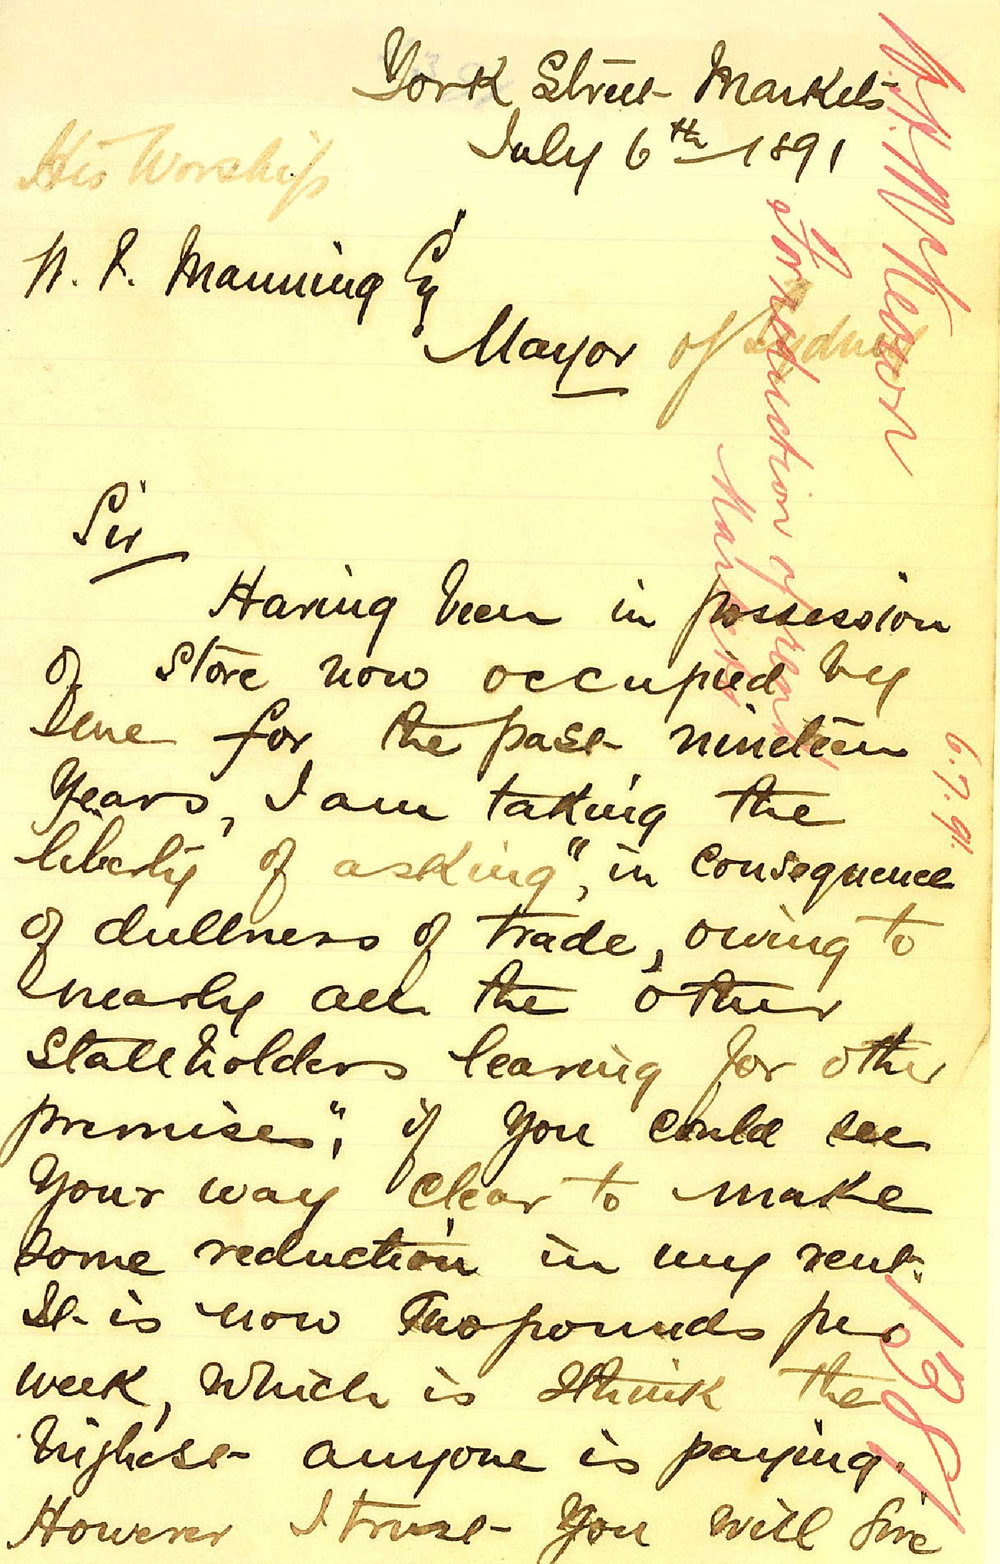 York Street Markets
July 6th 1891
His Worship
W. P. Manning Esq
Mayor of Sydney
Sir
Having been in possession
of Store now occupied by
me for the past nineteen
Years, I am taking the
liberty of asking", in consequence
of dullness of trade, owing to
nearly all the other
Stallholders leaving for other
premises", if you could see
Your way clear to make
some reduction in my rent.
It is now Two pounds per
week, which is I think the
highest anyone is paying.
However I trust You will give
McKeown
For reduction of rent
Markets
6.7.91.
1381